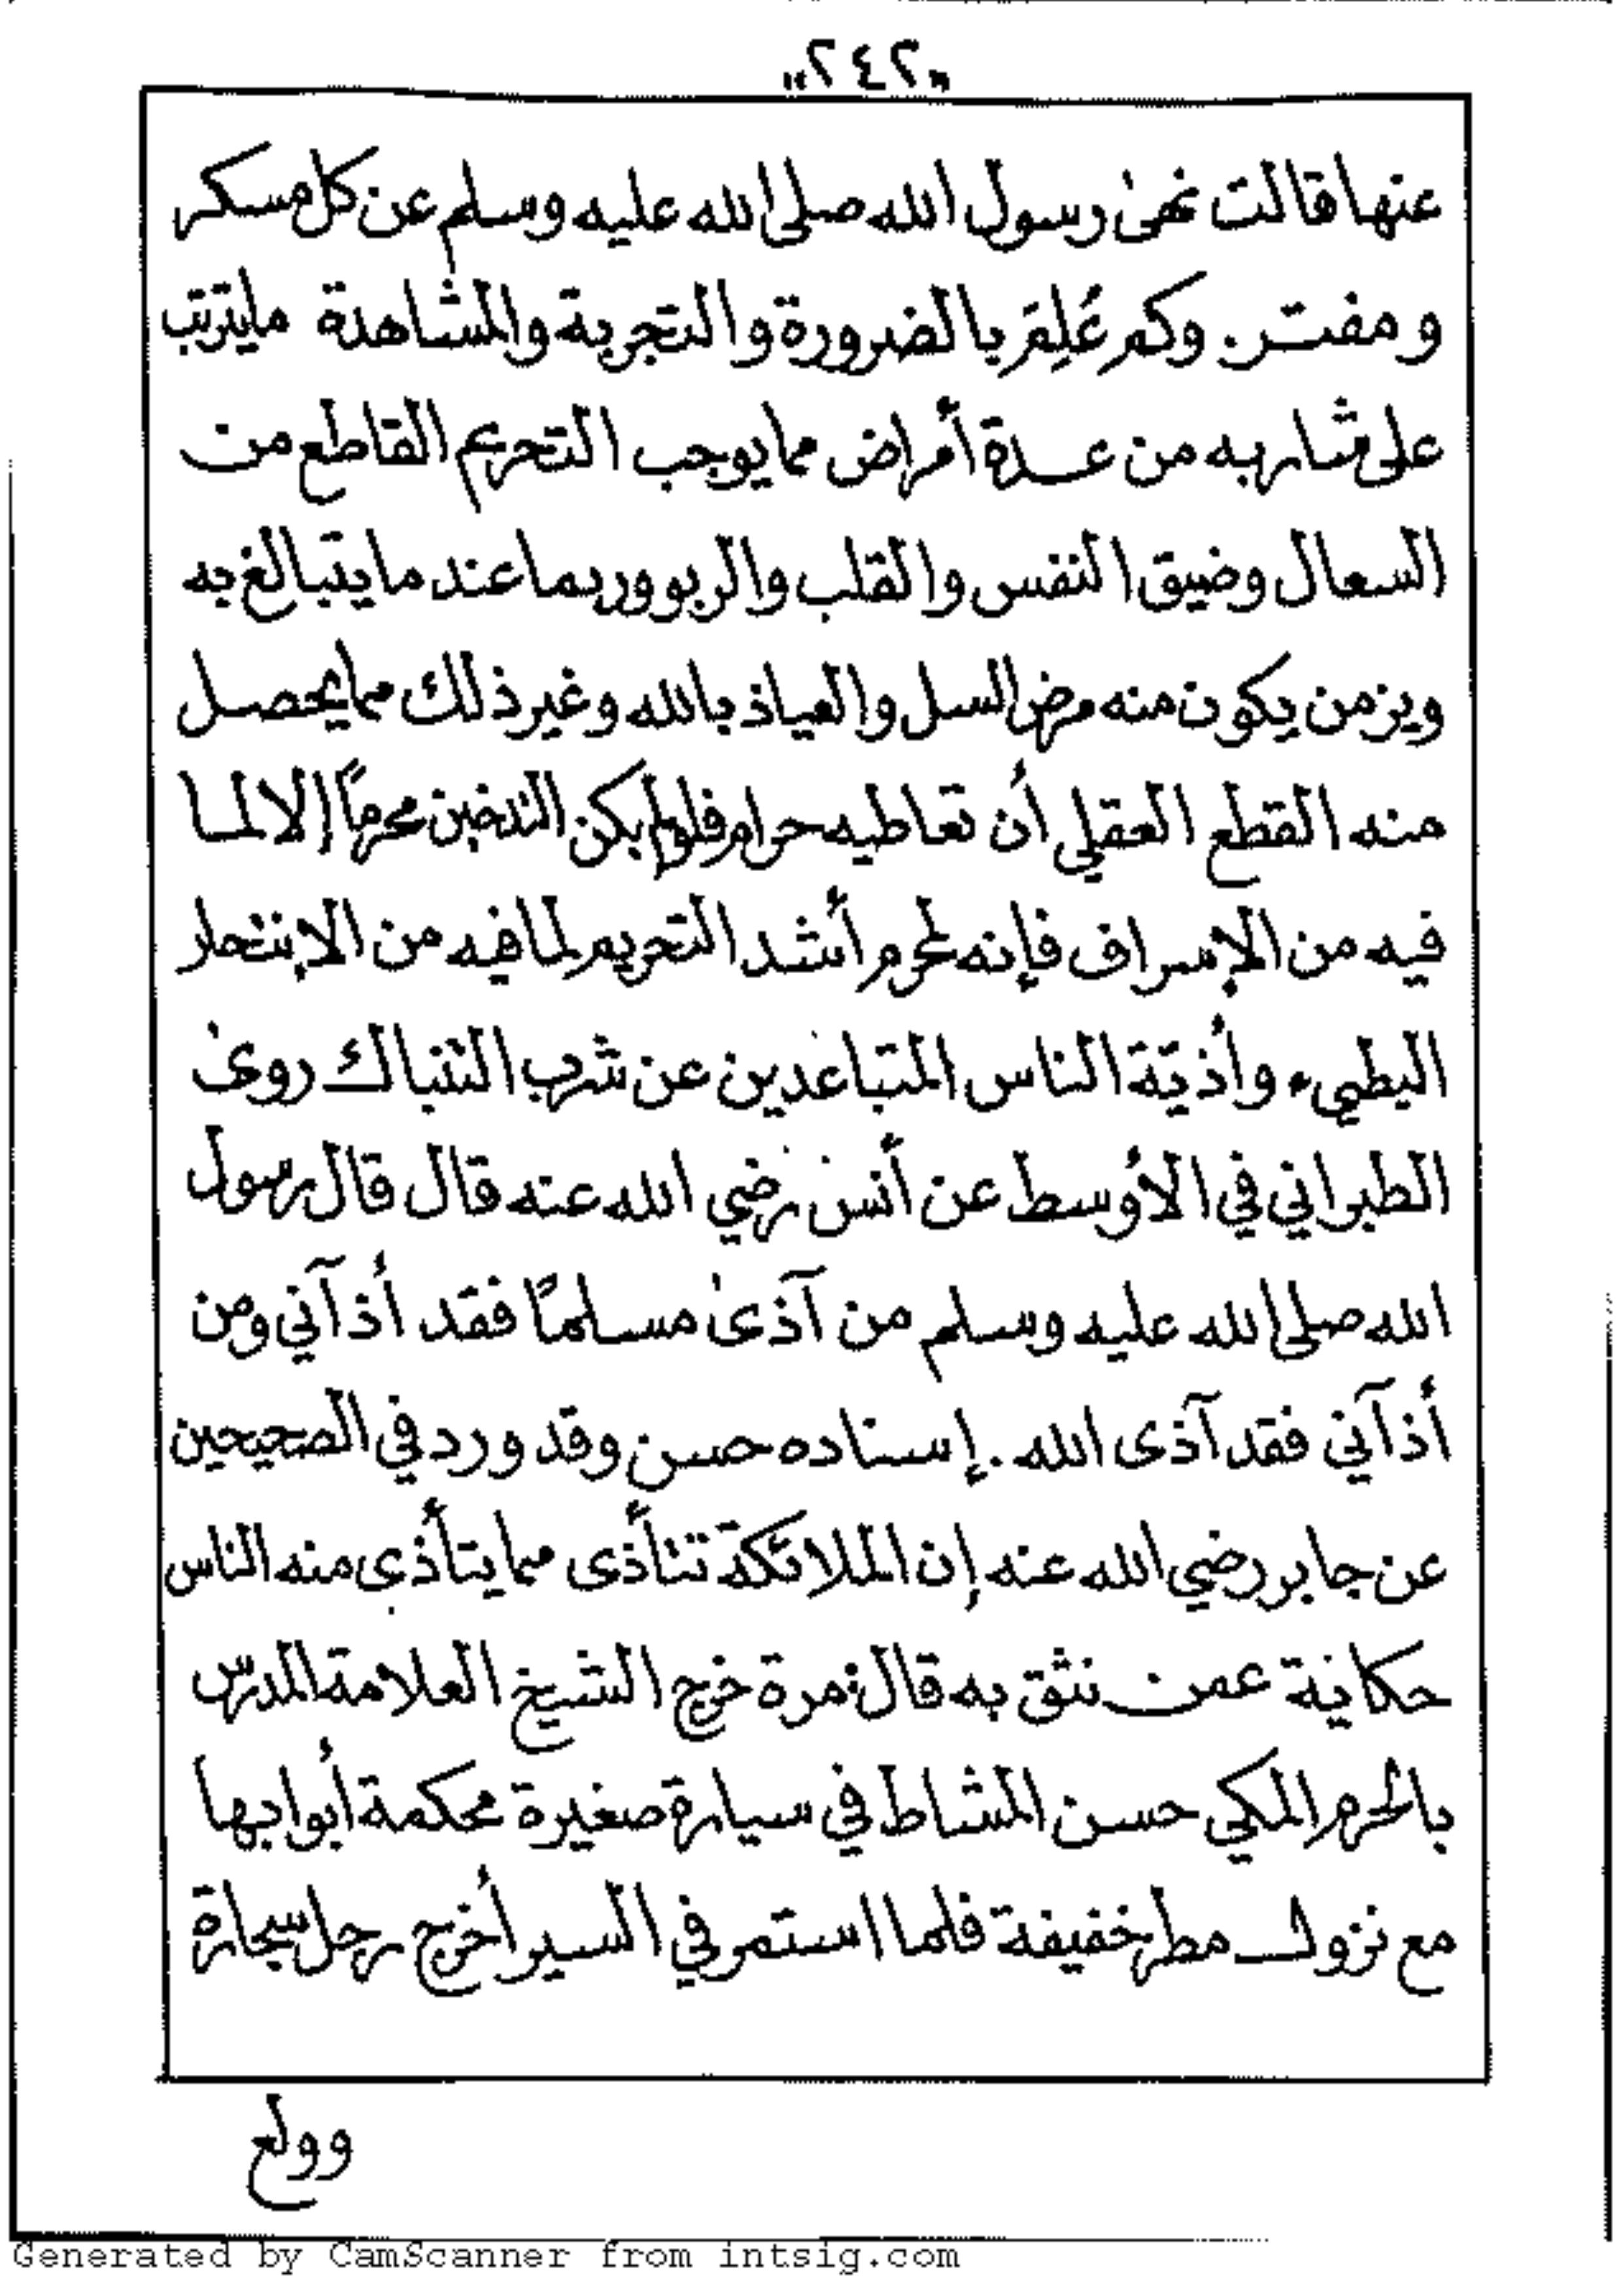 "٢٤٢"
عنها قالت نهىٰ رسول الله صلى الله عليه وسلم عن كل مسكر
ومفتر. وكم عُلِمَ بالضرورة والتجربة والمشاهدة مايترتب
على شاربه من عدة أمراض مما يوجب التحريم القاطع من
السعال وضيق النفس والقلب والربو وربما عند ما يتبالغ به
ويزمن يكون منه مرض السل والعياذ بالله وغير ذلك مما يحصل
منه القطع العقلي أن تعاطيه حرام فلولم يكن التدخين محرمًا إلا لما
فيه من الإسراف فإنه لمحرم أشد التحريم لما فيه من الإنتحار
البطيىء وأذيّة الناس المتباعدين عن شرب التنباك روىٰ
الطبراني في الأوسط عن أنس رضي الله عنه قال قال رسول
الله صلى الله عليه وسلم من آذىٰ مسلمًا فقد أذآني ومن
أذآني فقد آذى الله. إسناده حسن وقد ورد في الصحيحين
عن جابر رضي الله عنه إن الملائكة تتأذى مما يتأذى منه الناس
حكاية عمن نثق به قال: مرة خرج الشيخ العلامة المدرّس
بالحرم المكي حسن المشاط في سيارة صغيرة محكمة أبوابها
مع نزول مطر خفيفة فلما استمر في السير أخرج رجل سجارة
وولع
Generated by CamScanner from intsig.com